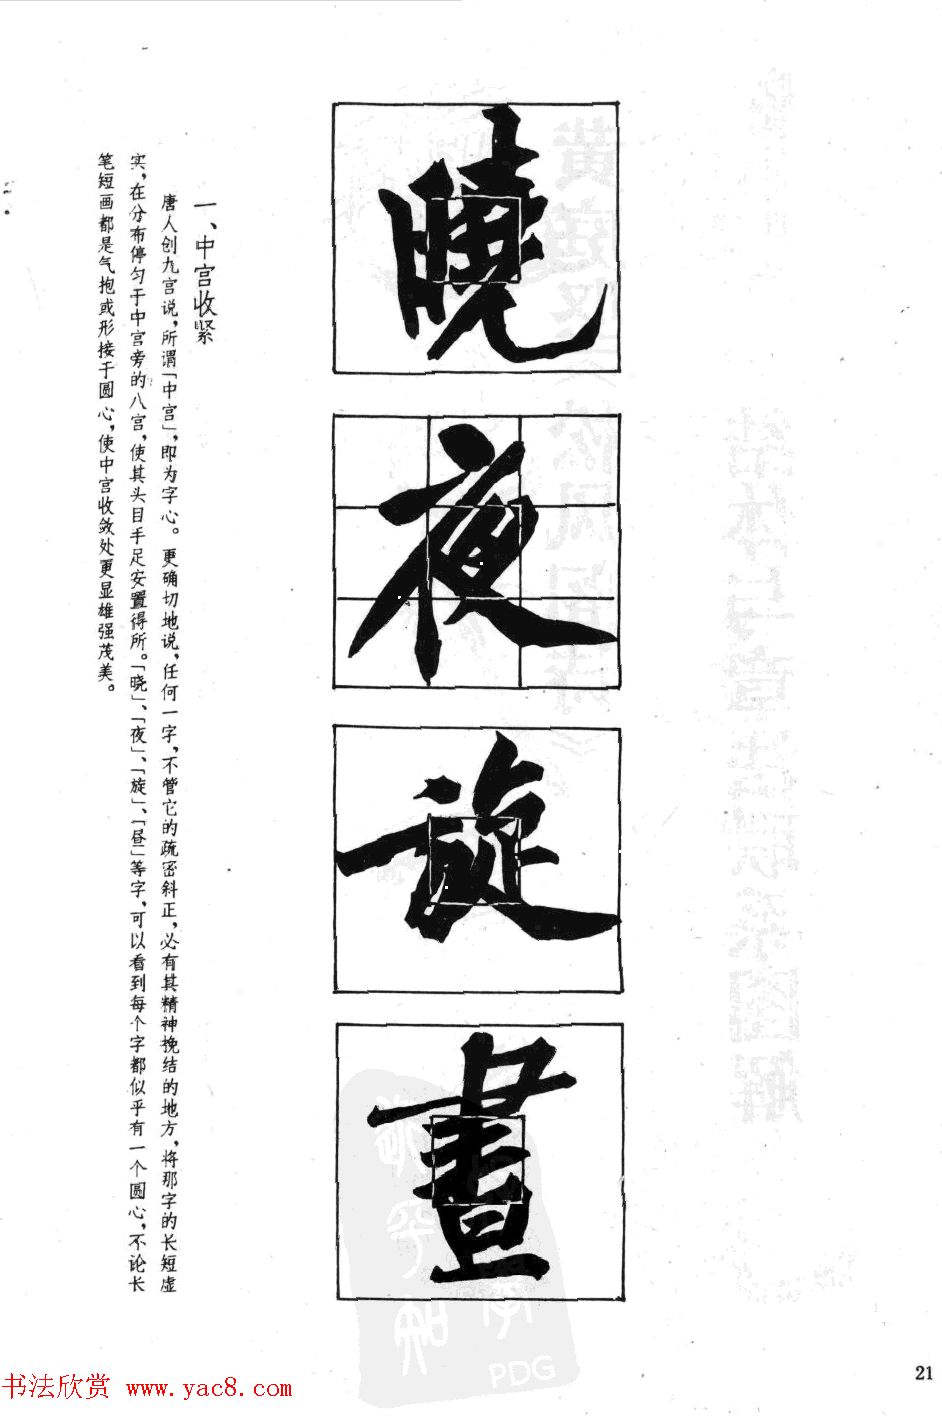 一、中宫收紧
唐人创九宫说，所谓「中宫」，即为字心。更确切地说，任何一字，不管它的疏密斜正，必有其精神挽结的地方，将那字的长短虚
实，在分布停匀于中宫旁的八宫，使其头目手足安置得所。「晓」、「夜」、「旋」、「昼」等字，可以看到每个字都似乎有一个圆心，不论长
笔短画都是气抱或形接于圆心，使中宫收敛处更显雄强茂美。
曉
夜
旋
晝
21
PDG
书法欣赏 www.yac8.com